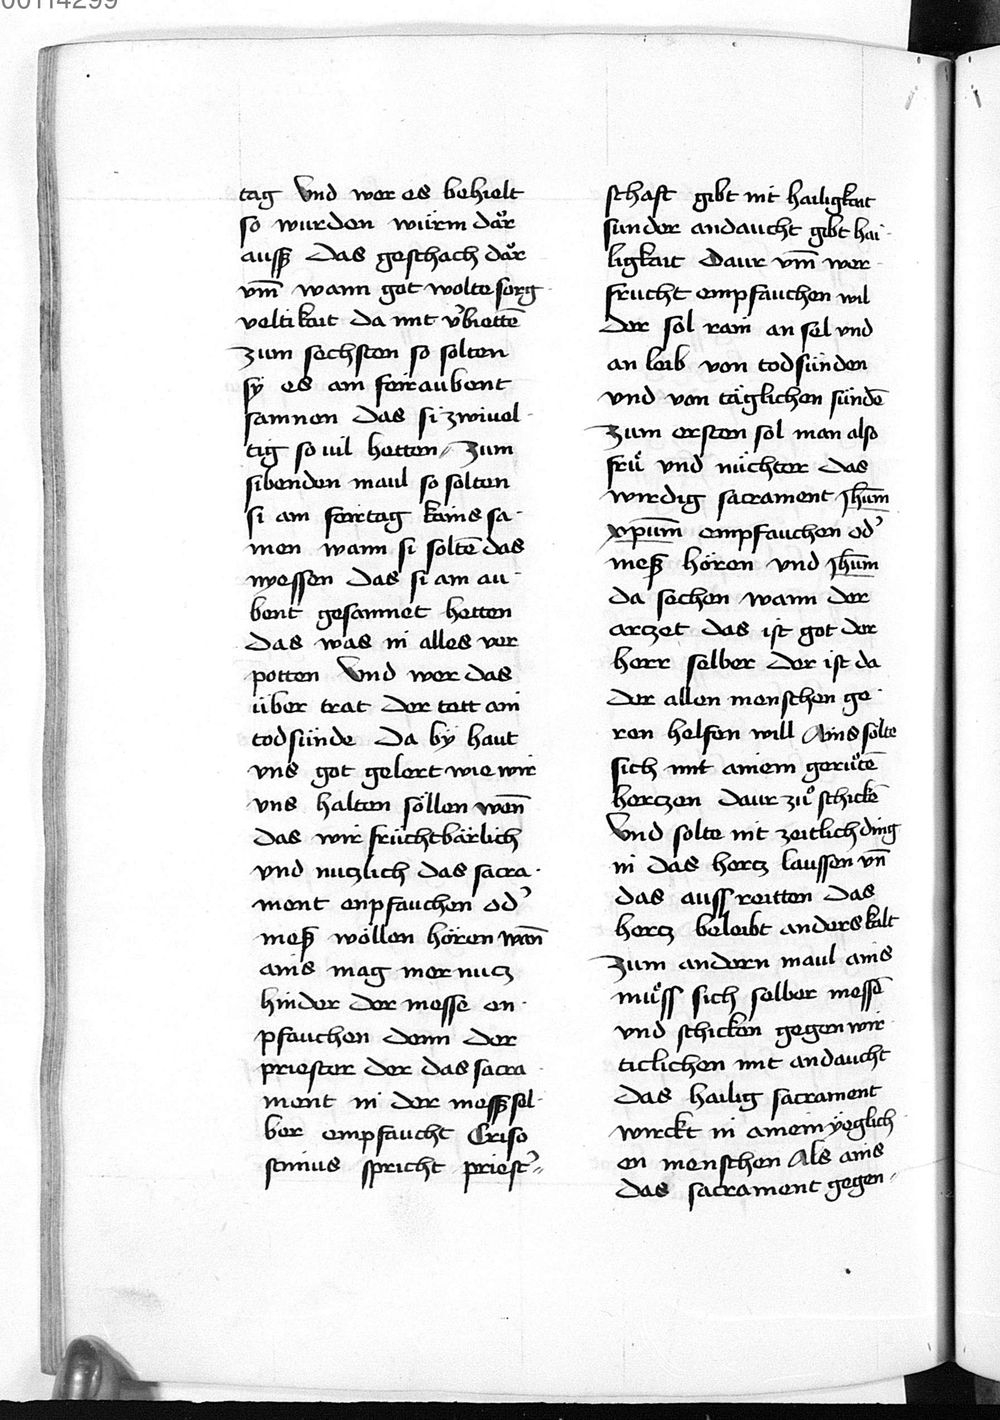 00114299
tag Vnd wer es behielt
so wurden würm dar
auß Das geschach dar
vm̄ wann got wolte sorg
veltikait da mit v̾biettē
zum sechsten so solten
sÿ es am feiraubent
samnen das si zwiuel
tig so vil hetten zum
sibenden maul so solten
si am feirtag kains sa
men wann si soltē das
nyessen das si am au
bent gesamnet hetten
das was in alles ver
potten Vnd wer das
über trat der tett ain
todsünde Da bÿ haut
vns got gelert wie wir
vns halten söllen wen̄
das wir früchtbärlich
vnd nuczlich das sacra
ment enpfauchen od̾
meß wöllen hören wan̄
ains mag mer nucz
hinder der messe en
pfauchen denn der
priester der das sacra
ment in der meß sel
ber empfaucht Criso
stimus spricht priest̾
schaft gibt nit hailigkait
sunder andaucht gibt hai
ligkait Daur vm̄ wer
frucht empfauchen wil
der sol rain an sel vnd
an leib von todsünden
vnd von täglichen sündē
zum ersten sol man also
frü vnd nüchter das
wirdig sacrament jhūm
xpūm empfauchen od̾
meß hören vnd jhūm
da sechen wann der
arczet das ist got der
herr selber der ist da
der allen menschen ge
ren helfen will Ains solte
sich mit ainem gerütē
herczen daur zuͦ schickē
Vnd solte nit zeitlich ding
in das hercz laussen vn̄
das auss reitten das
hercz beleibt anders kalt
zum andern maul ains
muͤss sich selber messē
vnd schicken gegen wir
ticlichen mit andaucht
das hailig sacrament
wirckt in ainem yeglich
en menschen Als ains
das sacrament gegen